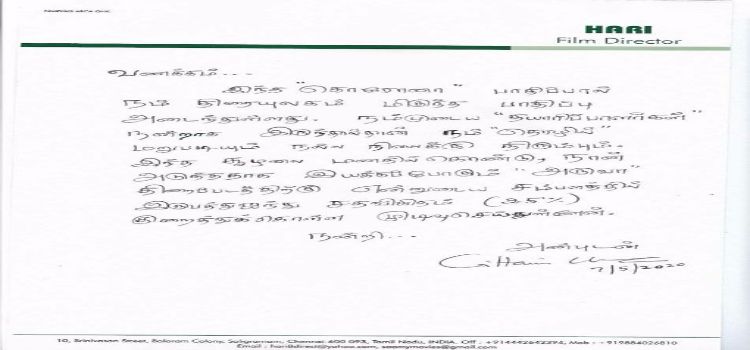 HARI
Film Director
வணக்கம்...
இந்த "கொரோனா" பாதிப்பால்
நம் திரையுலகம் மிகுந்த பாதிப்பு
அடைந்துள்ளது. நம்முடைய "தயாரிப்பாளர்கள்"
நன்றாக இருந்தால்தான் நம் "தொழில்"
மறுபடியும் நல்ல நிலைக்கு திரும்பும்.
இந்த சூழலை மனதில் கொண்டு, நான்
அடுத்ததாக இயக்கப்போகும் "அருவா"
திரைப்படத்திற்கு என்னுடைய சம்பளத்தில்
இருபத்திஐந்து சதவிகிதம் (25%)
குறைத்துக்கொள்ள முடிவுசெய்துள்ளேன்.
நன்றி...
அன்புடன்
7/5/2020
10, Srinivasan Street, Balaram Colony, Saligramam, Chennai 600 093, Tamil Nadu, INDIA. Off : +914442642294, Mob : +919884026810